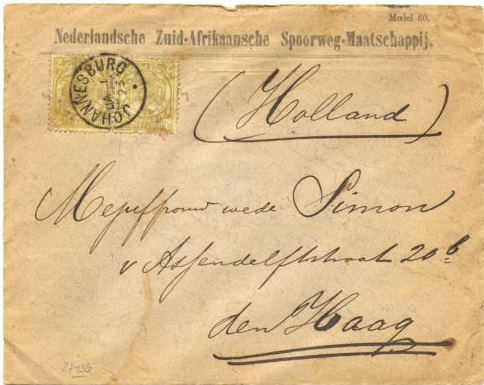 Model 60.
Nederlandsche Zuid-Afrikaansche Spoorweg-Maatschappij.
JOHANNESBURG
(Holland)
Mejuffrouw wede Simon
v Assendelftstraat 20b
den Haag